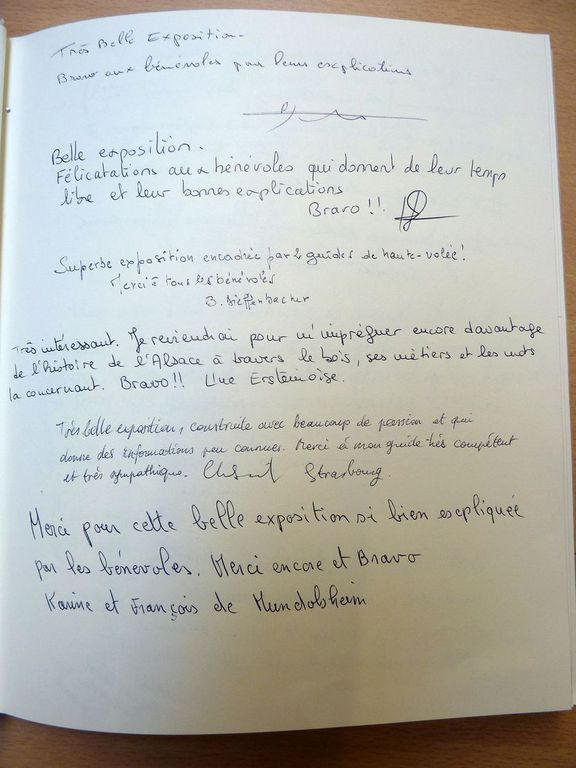 Très Belle Exposition.
Bravo aux bénévoles pour leurs explications
Belle exposition.
Félicatations aux bénévoles qui donnent de leur temps
libre et leur bonnes explications
Bravo !!
Superbe exposition encadrée par 2 guides de haute-volée !
Merci à tous les bénévoles
B. Sieffenbacher
Très intéressant. Je reviendrai pour m'imprégner encore davantage
de l'histoire de l'Alsace à travers le bois, ses métiers et les mots
la concernant. Bravo !! Une Ersteinoise.
Très belle exposition, construite avec beaucoup de passion et qui
donne des informations peu connues. Merci à mon guide très compétent
et très sympathique. Strasbourg.
Merci pour cette belle exposition si bien expliquée
par les bénévoles. Merci encore et Bravo
Karine et François de Mundolsheim